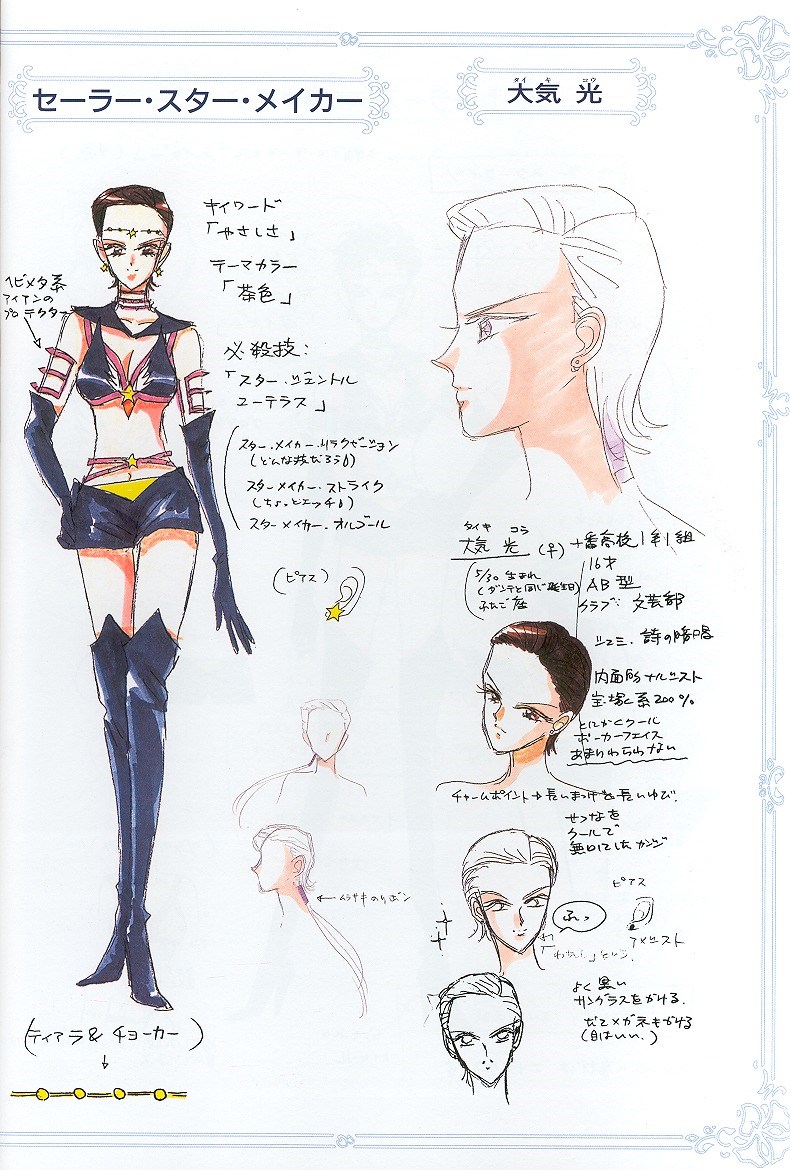 セーラー・スター・メイカー
タイキ コウ
大気 光
キイワード
「やさしさ」
テーマカラー
「茶色」
ヘビメタ系
アイアンの
プロテクター
必殺技:
「スター・ジェントル
ユーテラス」
スター・メイカー・リラクゼーション
(どんな技だろう)
スターメイカー・ストライク
(ちょっとエッチ)
スターメイカー・オルゴール
(ピアス)
タイキ コウ
大気 光 (♀)
5/30 生まれ
(ダンテと同じ誕生日)
ふたご座
十番高校1年1組
16才
AB型
クラブ: 文芸部
シュミ. 詩の暗唱
内面的ナルシスト
宝塚系200%
とにかくクール
ポーカーフェイス
あまりわらわない
チャームポイント→長いまつげ&長いゆび.
せつなを
クールで
無口にしたカンジ
ムラサキのリボン
ピアス
アメジスト
ふっ
「わたし」という.
よく黒い
サングラスをかける.
だてメガネもかける
(目はいい.)
(ティアラ&チョーカー)